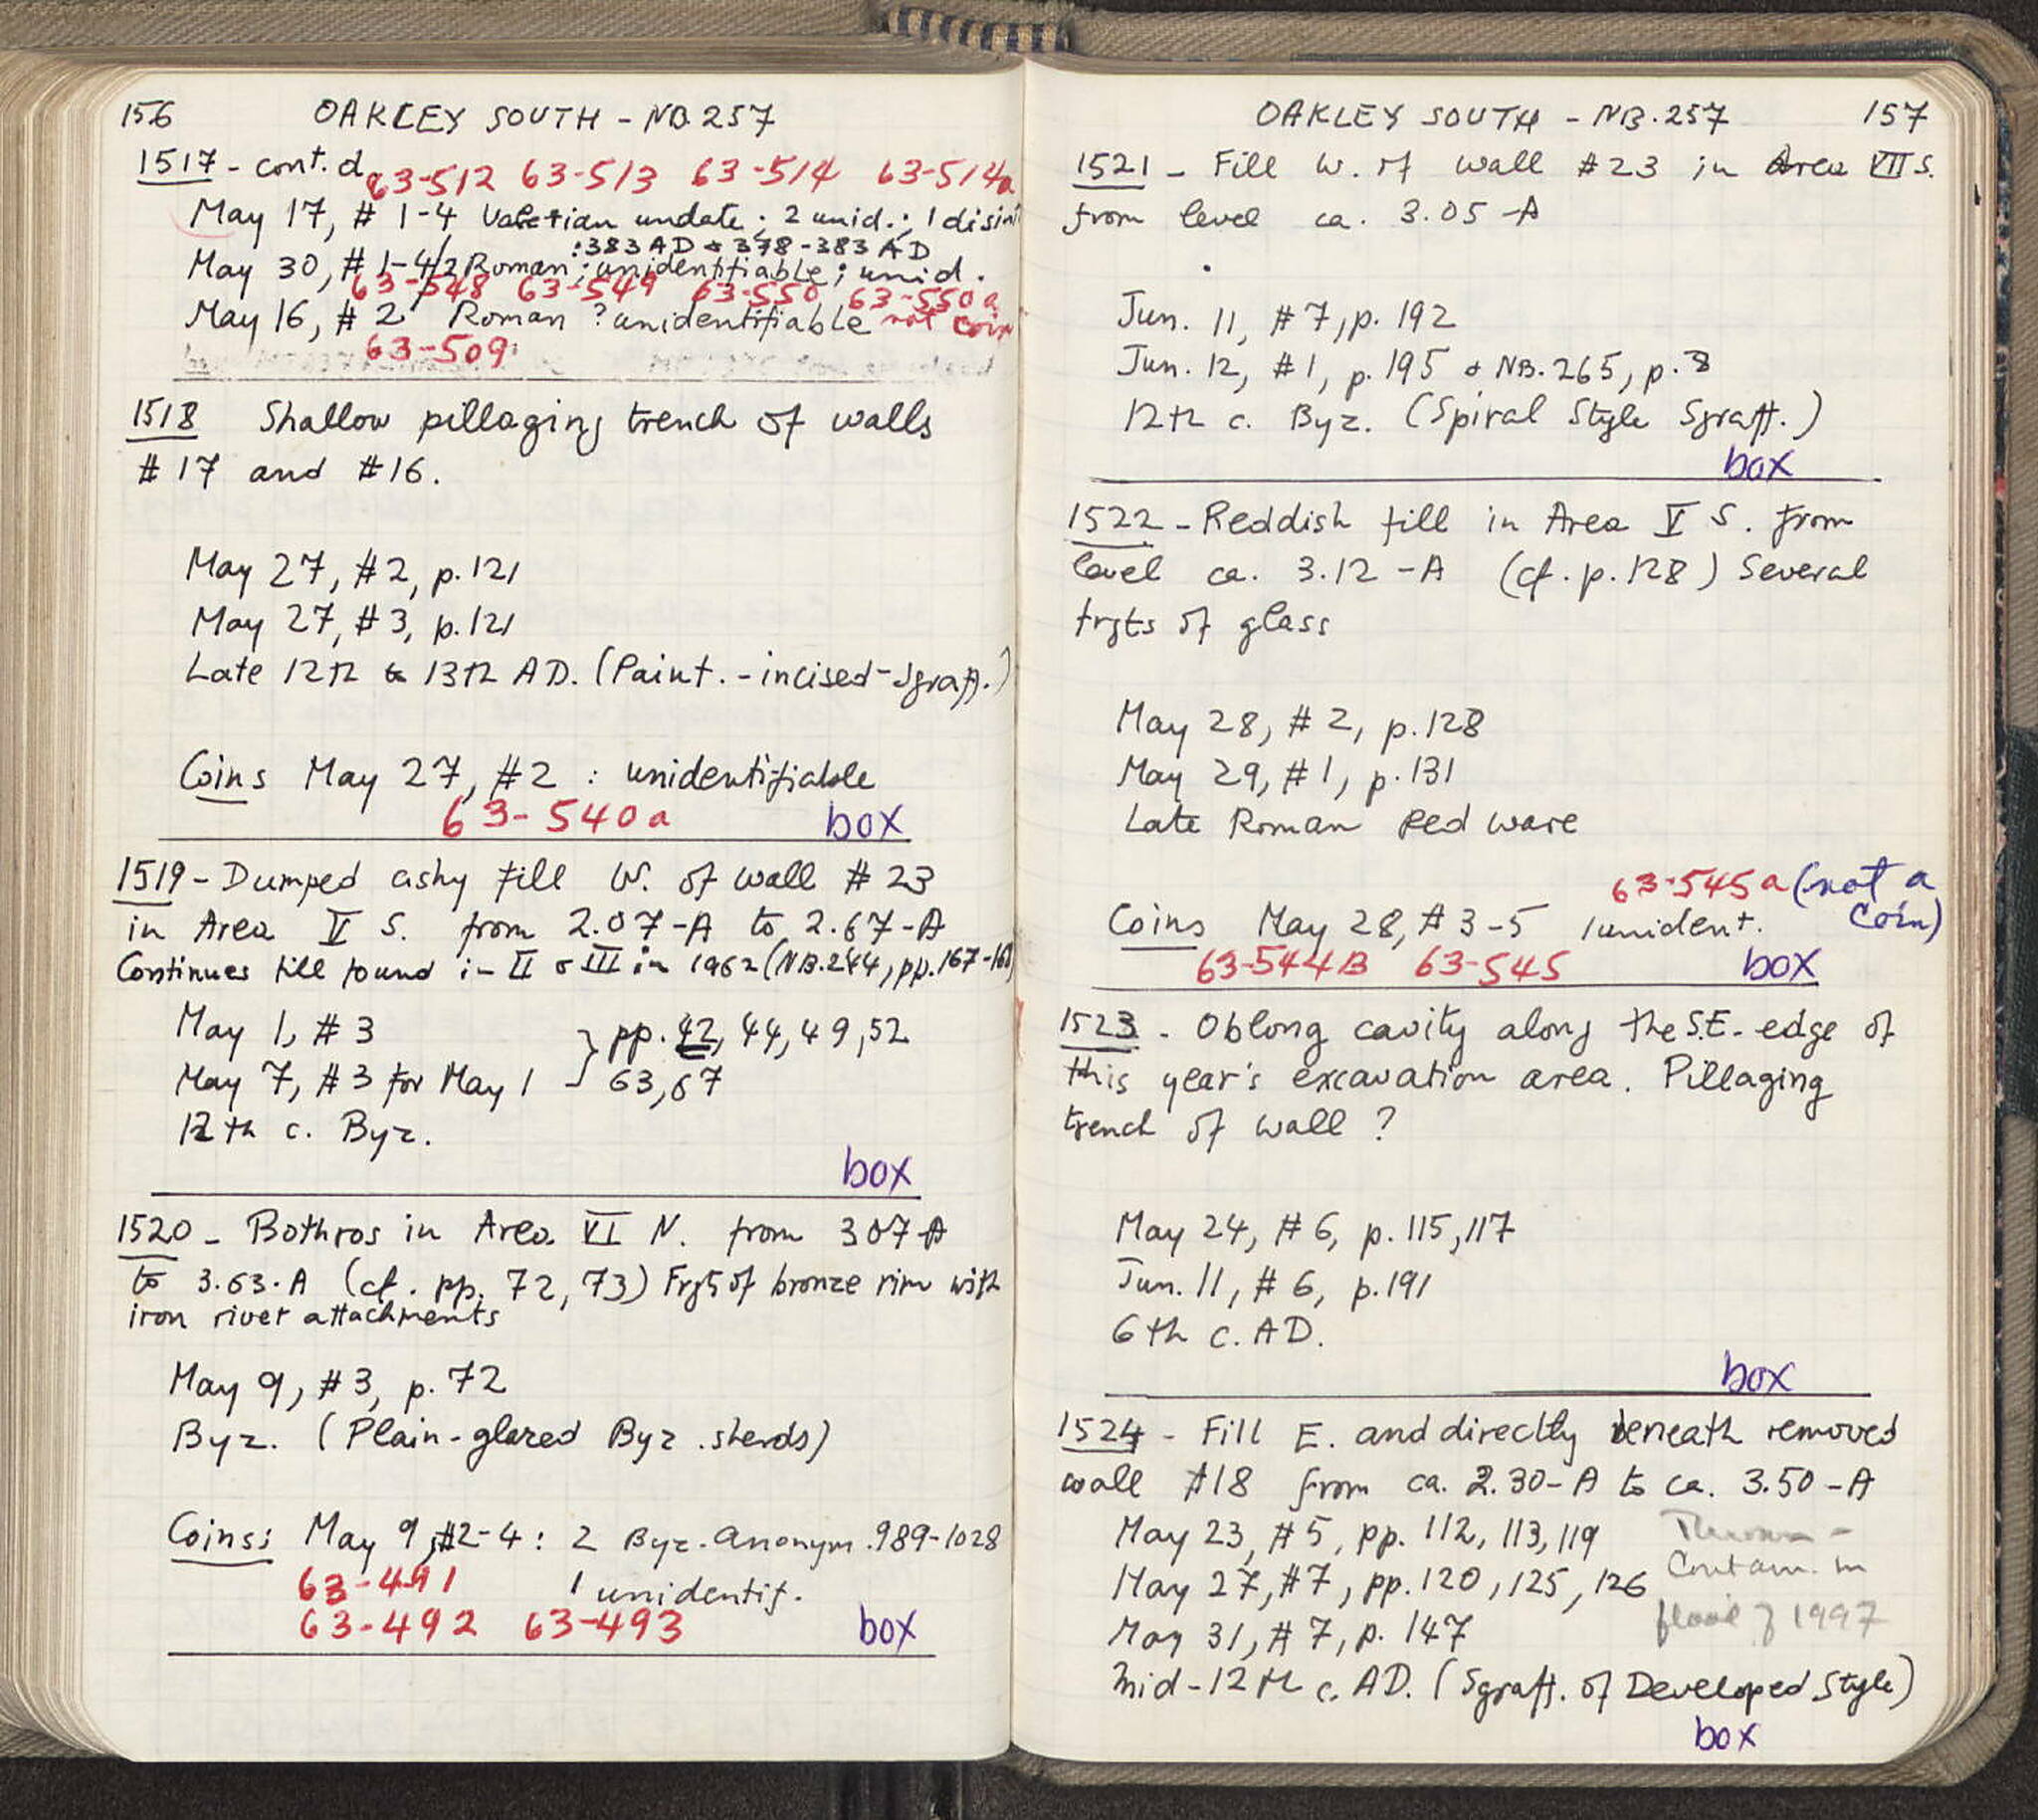 156 OAKLEY SOUTH - NB 257
1517 - cont.d 63-512 63-513 63-514 63-514a
May 17, # 1-4 Valerian undate; 2 unid.; 1 disint
:383 AD & 378-383 AD
May 30, # 1-4/2 Roman; unidentifiable; unid.
63-548 63-549 63-550 63-550a
May 16, # 2 Roman ? unidentifiable not coin
63-509
1518 Shallow pillaging trench of walls
# 17 and #16.
May 27, #2, p. 121
May 27, #3, p. 121
Late 12th & 13th AD. (Paint.-incised-Sgraff.)
Coins May 27, #2 : unidentifiable
63-540a box
1519 - Dumped ashy fill W. of wall # 23
in Area V S. from 2.07-A to 2.67-A
Continues fill found in II & III in 1962 (NB.244, pp.167-168)
May 1, # 3 } pp. 42, 44, 49, 52
May 7, #3 for May 1 63, 67
12th c. Byz.
box
1520 - Bothros in Area VI N. from 307-A
to 3.63.A (cf. pp. 72, 73) Frgts of bronze rim with
iron rivet attachments
May 9, #3, p. 72
Byz. (Plain-glazed Byz. sherds)
Coins: May 9, #2-4: 2 Byz. Anonym. 989-1028
63-491 1 unidentif.
63-492 63-493 box
OAKLEY SOUTH - NB.257 157
1521 - Fill W. of wall #23 in Area VII S.
from level ca. 3.05-A
Jun. 11, #7, p. 192
Jun. 12, #1, p. 195 & NB. 265, p. 8
12th c. Byz. (Spiral Style Sgraff.)
box
1522 - Reddish fill in Area V S. from
level ca. 3.12-A (cf. p. 128) Several
frgts of glass
May 28, # 2, p. 128
May 29, # 1, p. 131
Late Roman Red ware
63-545a (not a
Coins May 28, # 3-5 1 unident. coin)
63-544B 63-545 box
1523 - Oblong cavity along the S.E. edge of
this year's excavation area. Pillaging
trench of wall ?
May 24, # 6, p. 115, 117
Jun. 11, # 6, p. 191
6th c. AD.
box
1524 - Fill E. and directly beneath removed
wall #18 from ca. 2.30-A to ca. 3.50-A
May 23, #5, pp. 112, 113, 119 Thrown -
May 27, #7, pp. 120, 125, 126 Contam. in
May 31, #7, p. 147 flood of 1997
mid-12th c. AD. (Sgraff. of Developed Style)
box